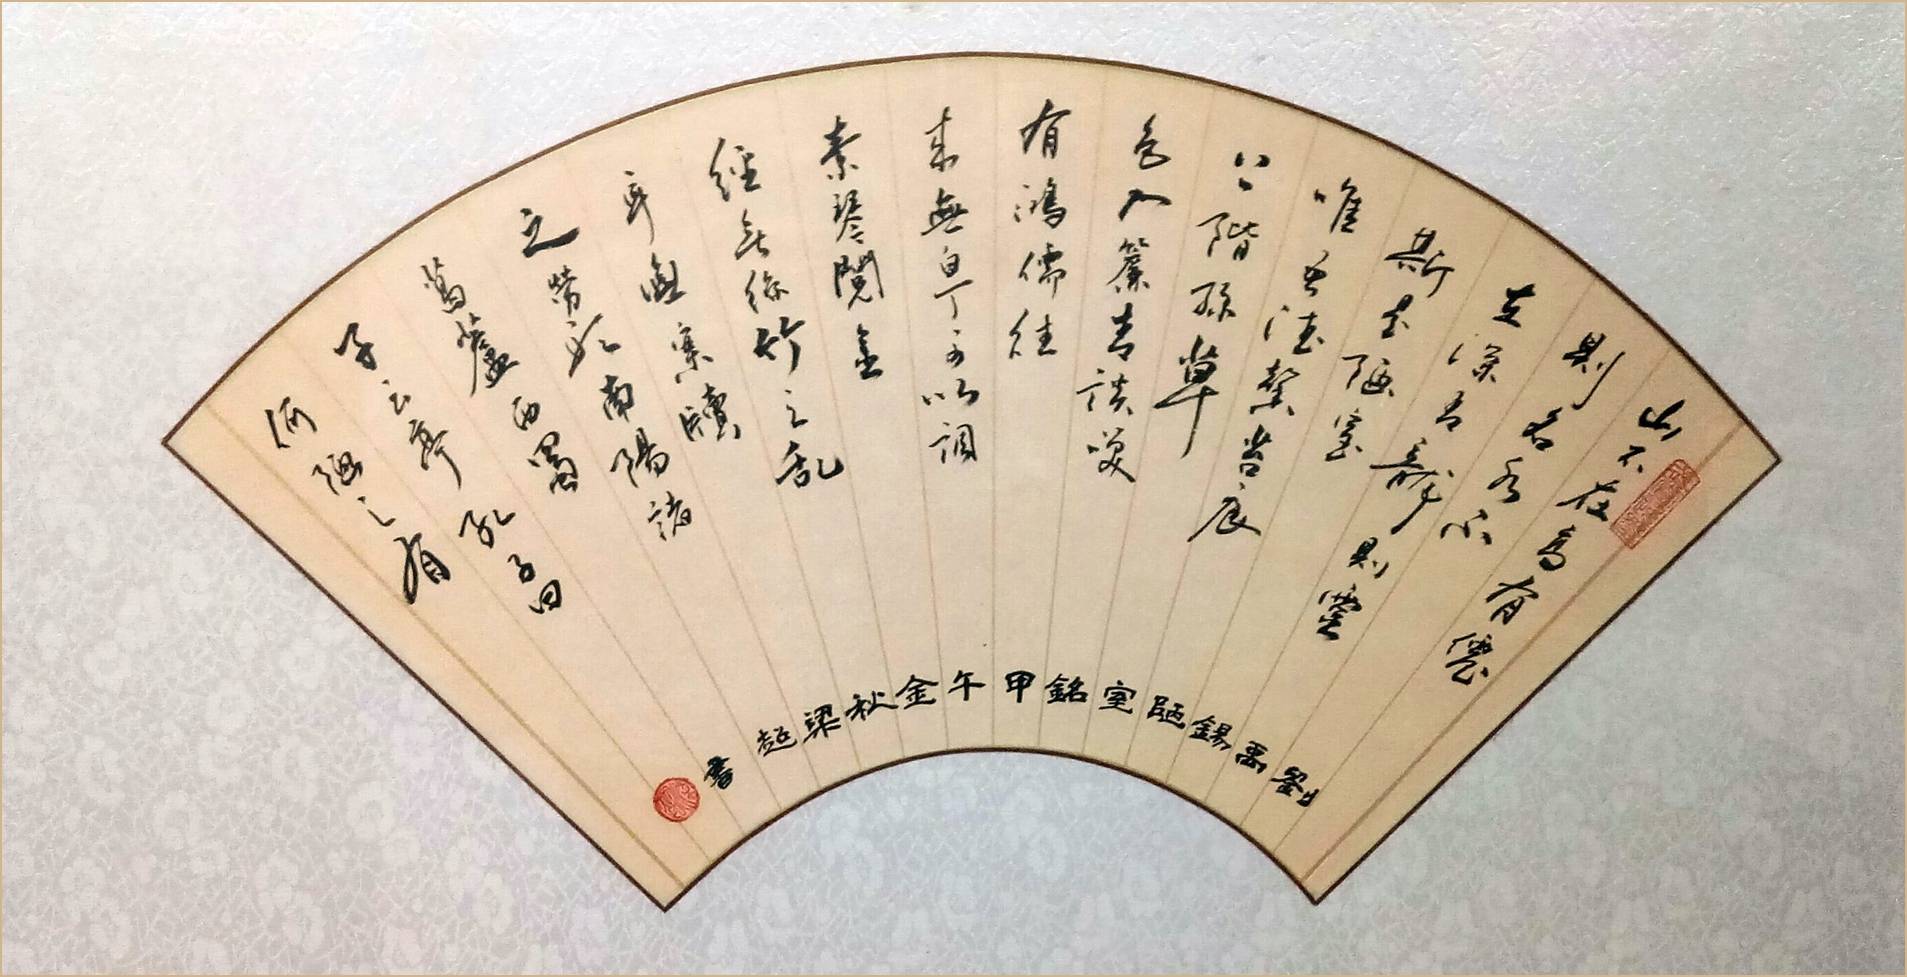 山不在高有僊
則名水不
在深有龍則靈
斯是陋室
唯吾德馨苔痕
上階綠草
色入簾青談笑
有鴻儒往
來無白丁可以調
素琴閱金
經無絲竹之亂
耳無案牘
之勞形南陽諸
葛廬西蜀
子云亭孔子曰
何陋之有
劉禹錫陋室銘甲午金秋梁超書